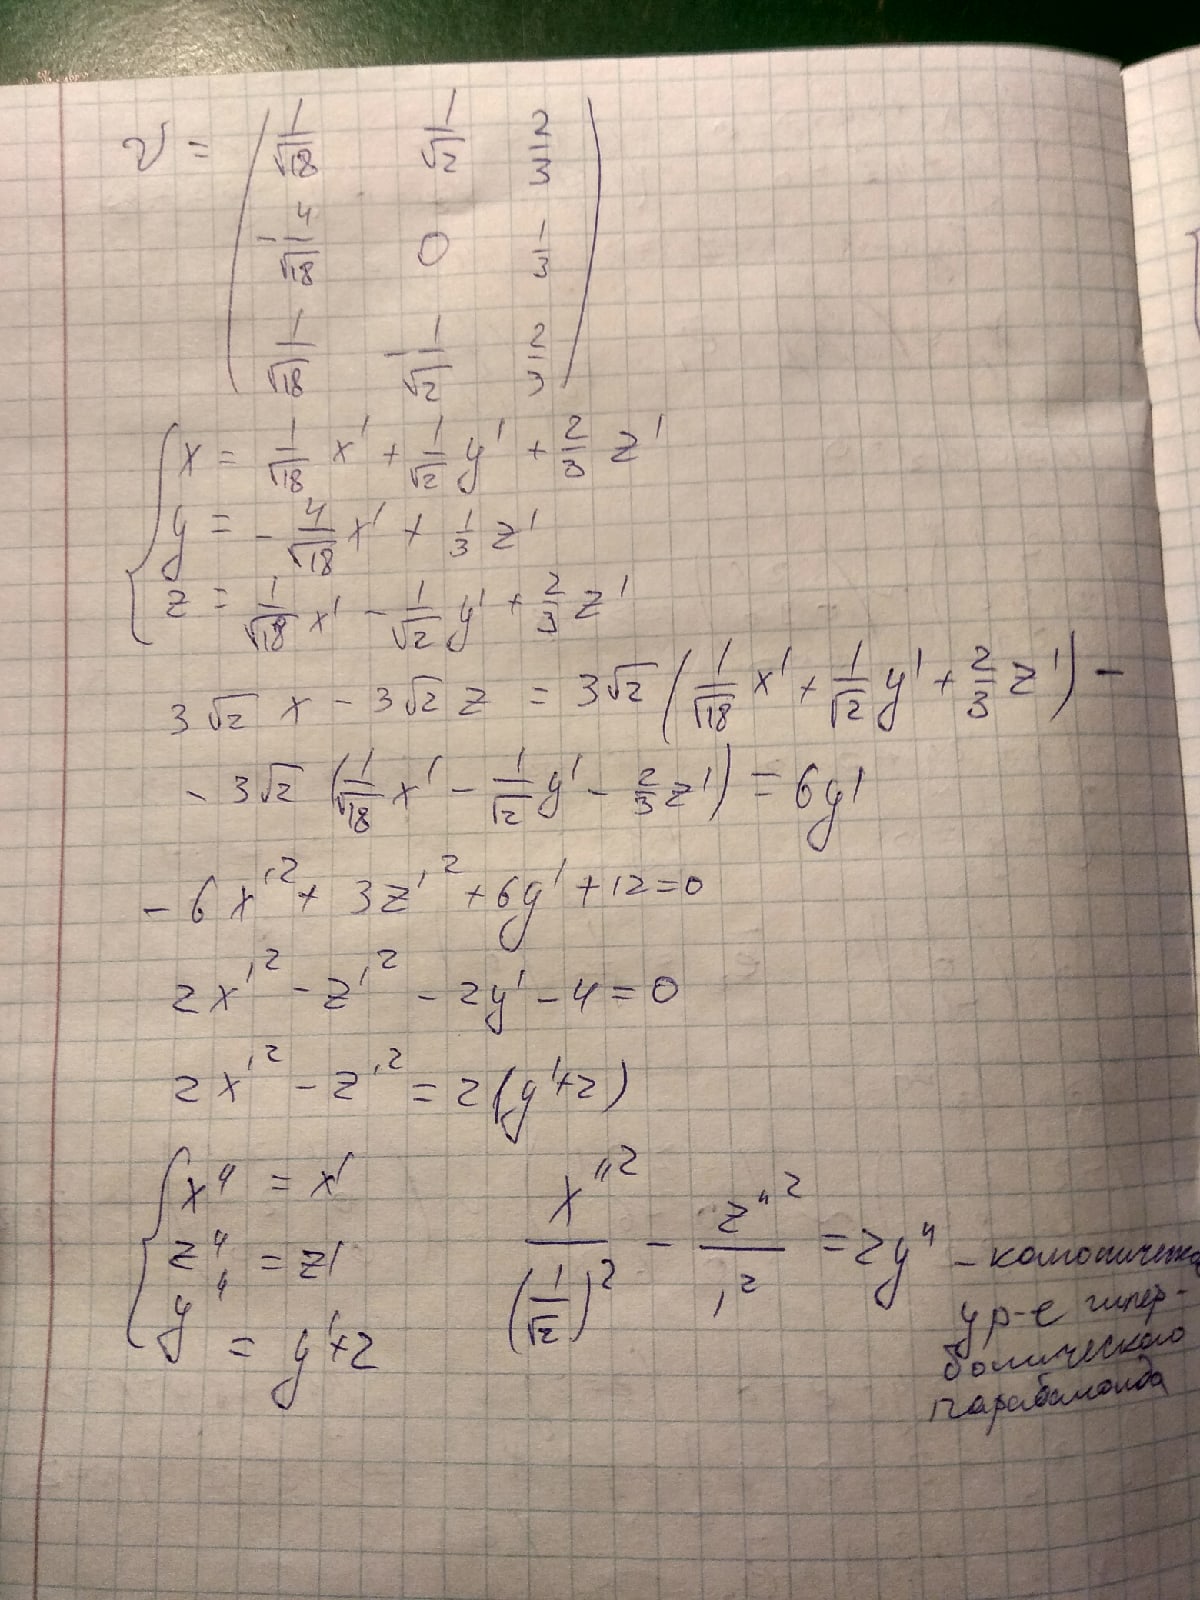 V = ( 1/√18 1/√2 2/3
-4/√18 0 1/3
1/√18 -1/√2 2/3 )
{ x = 1/√18 x' + 1/√2 y' + 2/3 z'
y = - 4/√18 x' + 1/3 z'
z = 1/√18 x' - 1/√2 y' + 2/3 z'
3√2 x - 3√2 z = 3√2 ( 1/√18 x' + 1/√2 y' + 2/3 z' ) -
- 3√2 ( 1/√18 x' - 1/√2 y' - 2/3 z' ) = 6y'
- 6x'² + 3z'² + 6y' + 12 = 0
2x'² - z'² - 2y' - 4 = 0
2x'² - z'² = 2(y'+2)
{ x" = x'
z" = z'
y" = y'+2
x"²/(1/√2)² - z"²/1² = 2y" - каноническое
ур-е гипер-
болического
параболоида